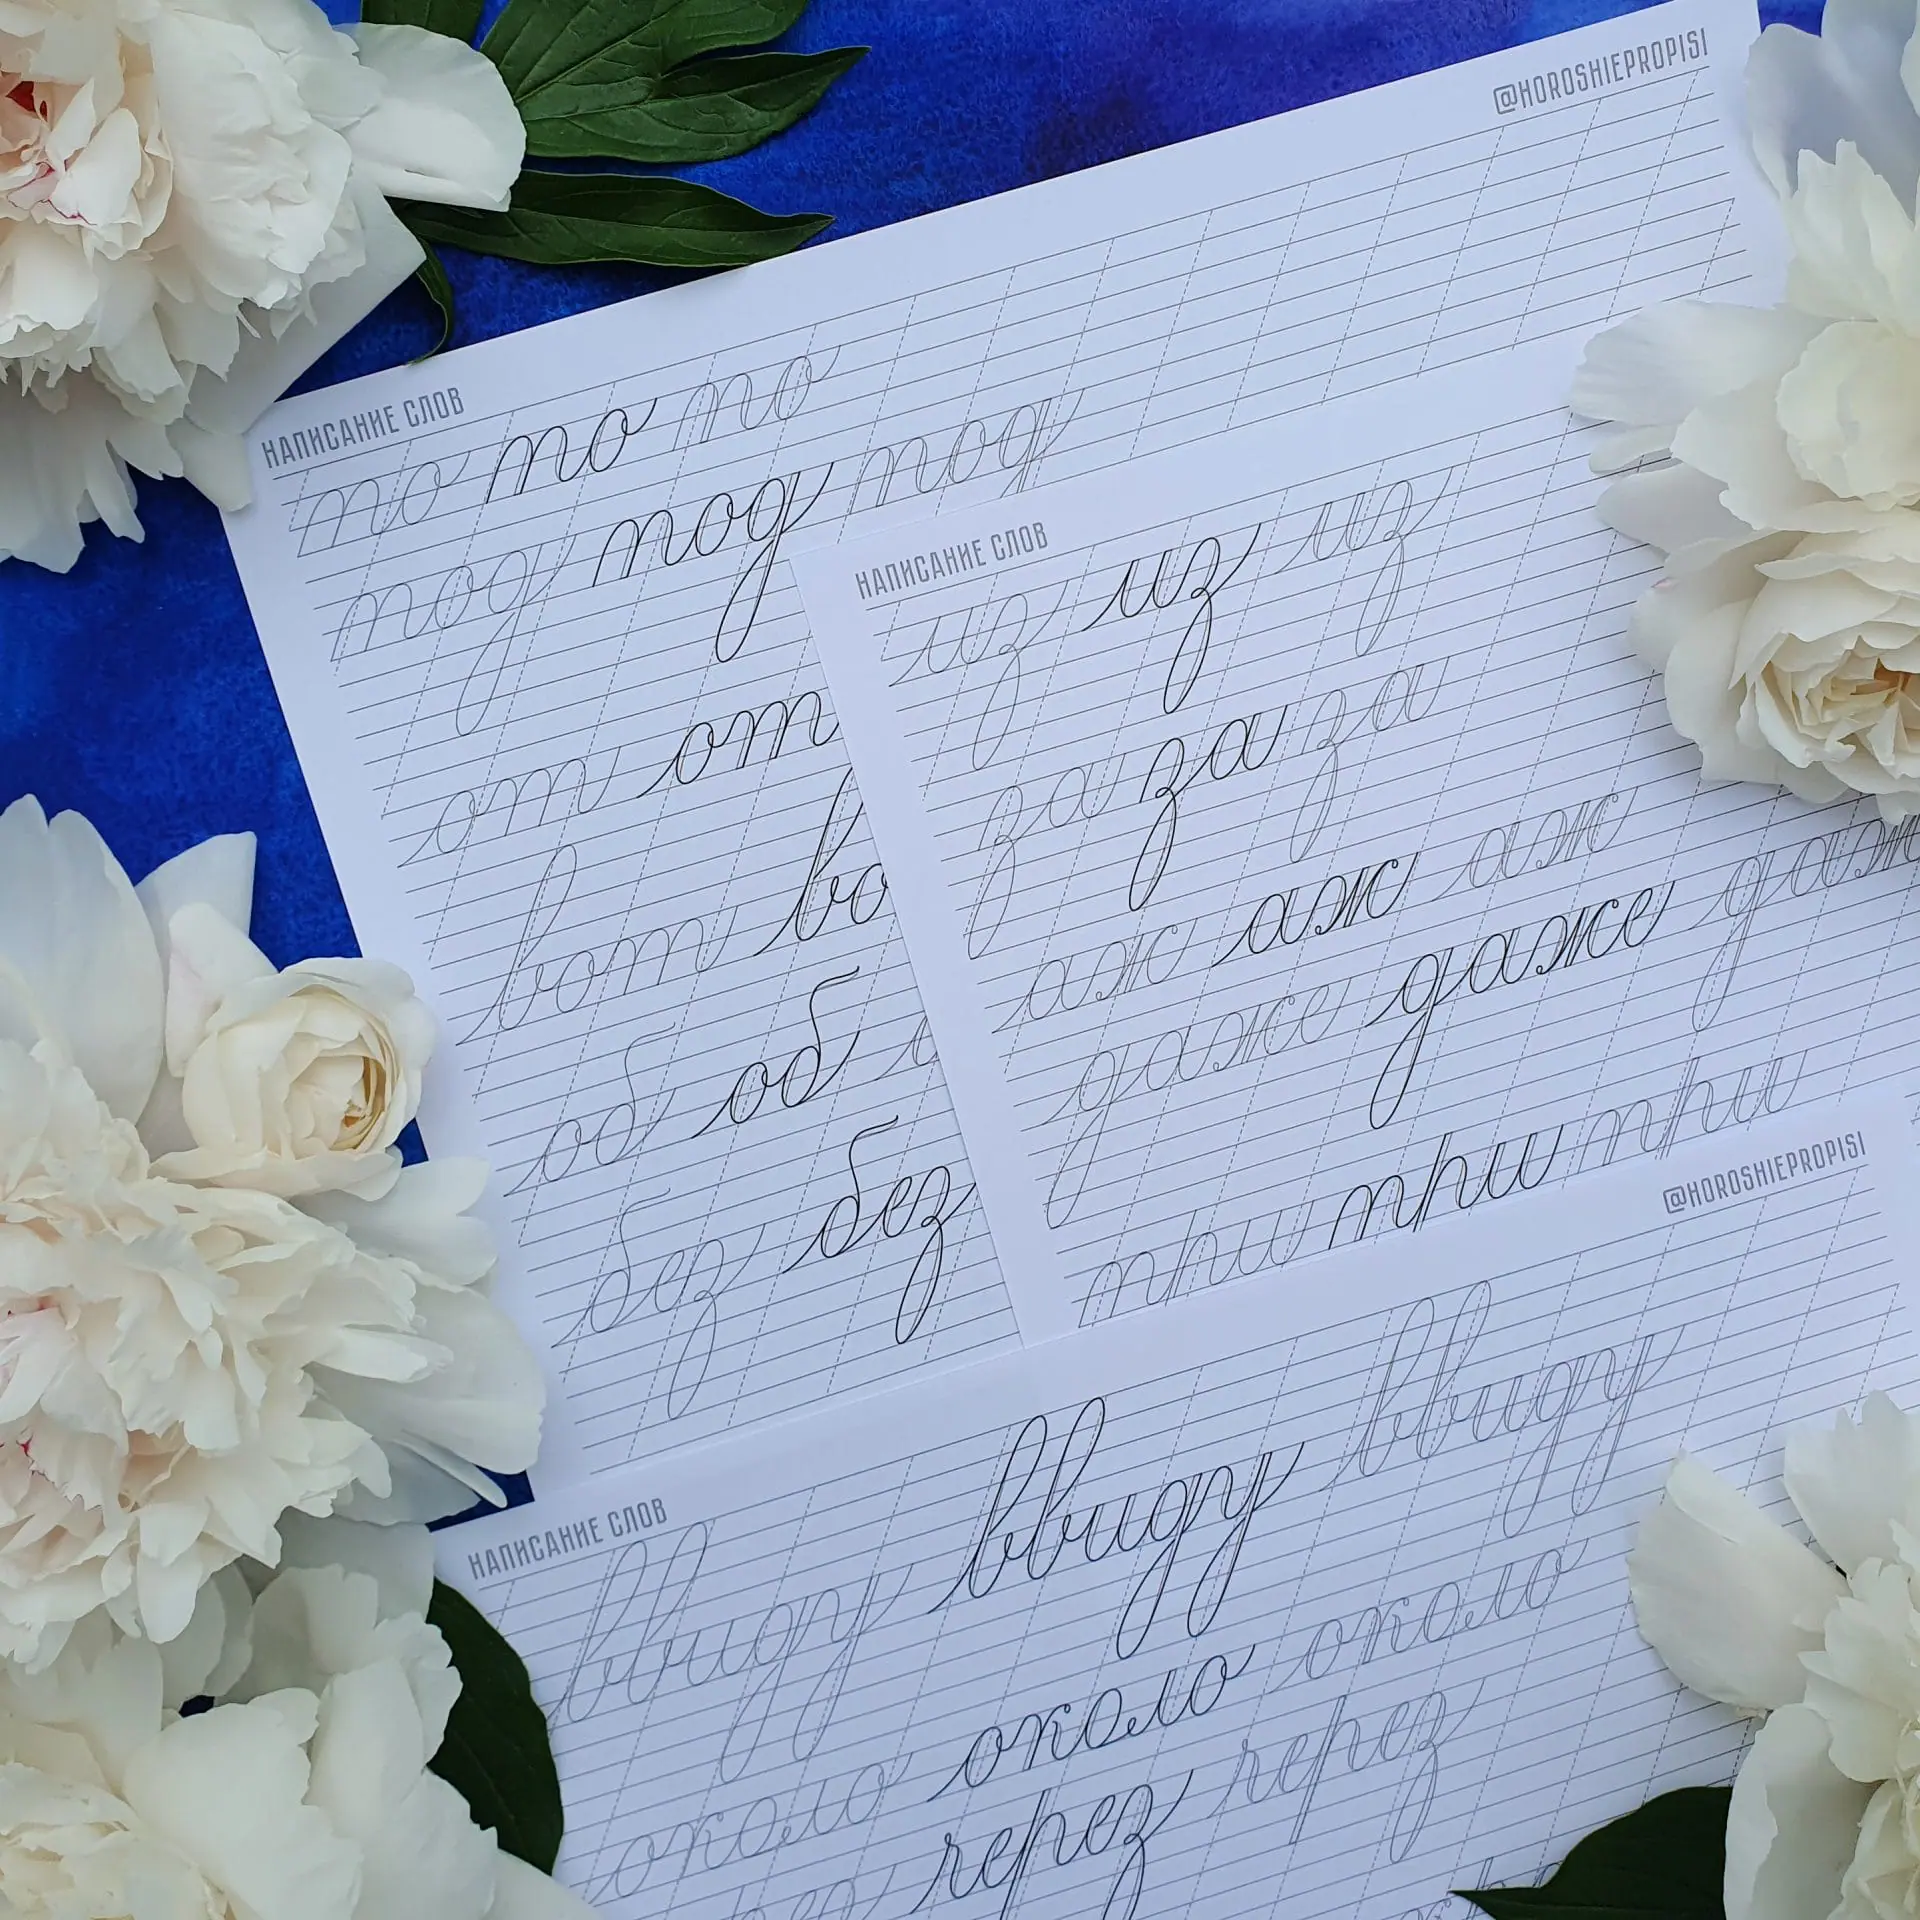 @HOROSHIEPROPISI
НАПИСАНИЕ СЛОВ
по по по
под под под
от от
вот во
об об
без без
НАПИСАНИЕ СЛОВ
из из из
за за за
аж аж аж
даже даже даж
при при при
@HOROSHIEPROPISI
НАПИСАНИЕ СЛОВ
ввиду ввиду ввиду
около около около
через через